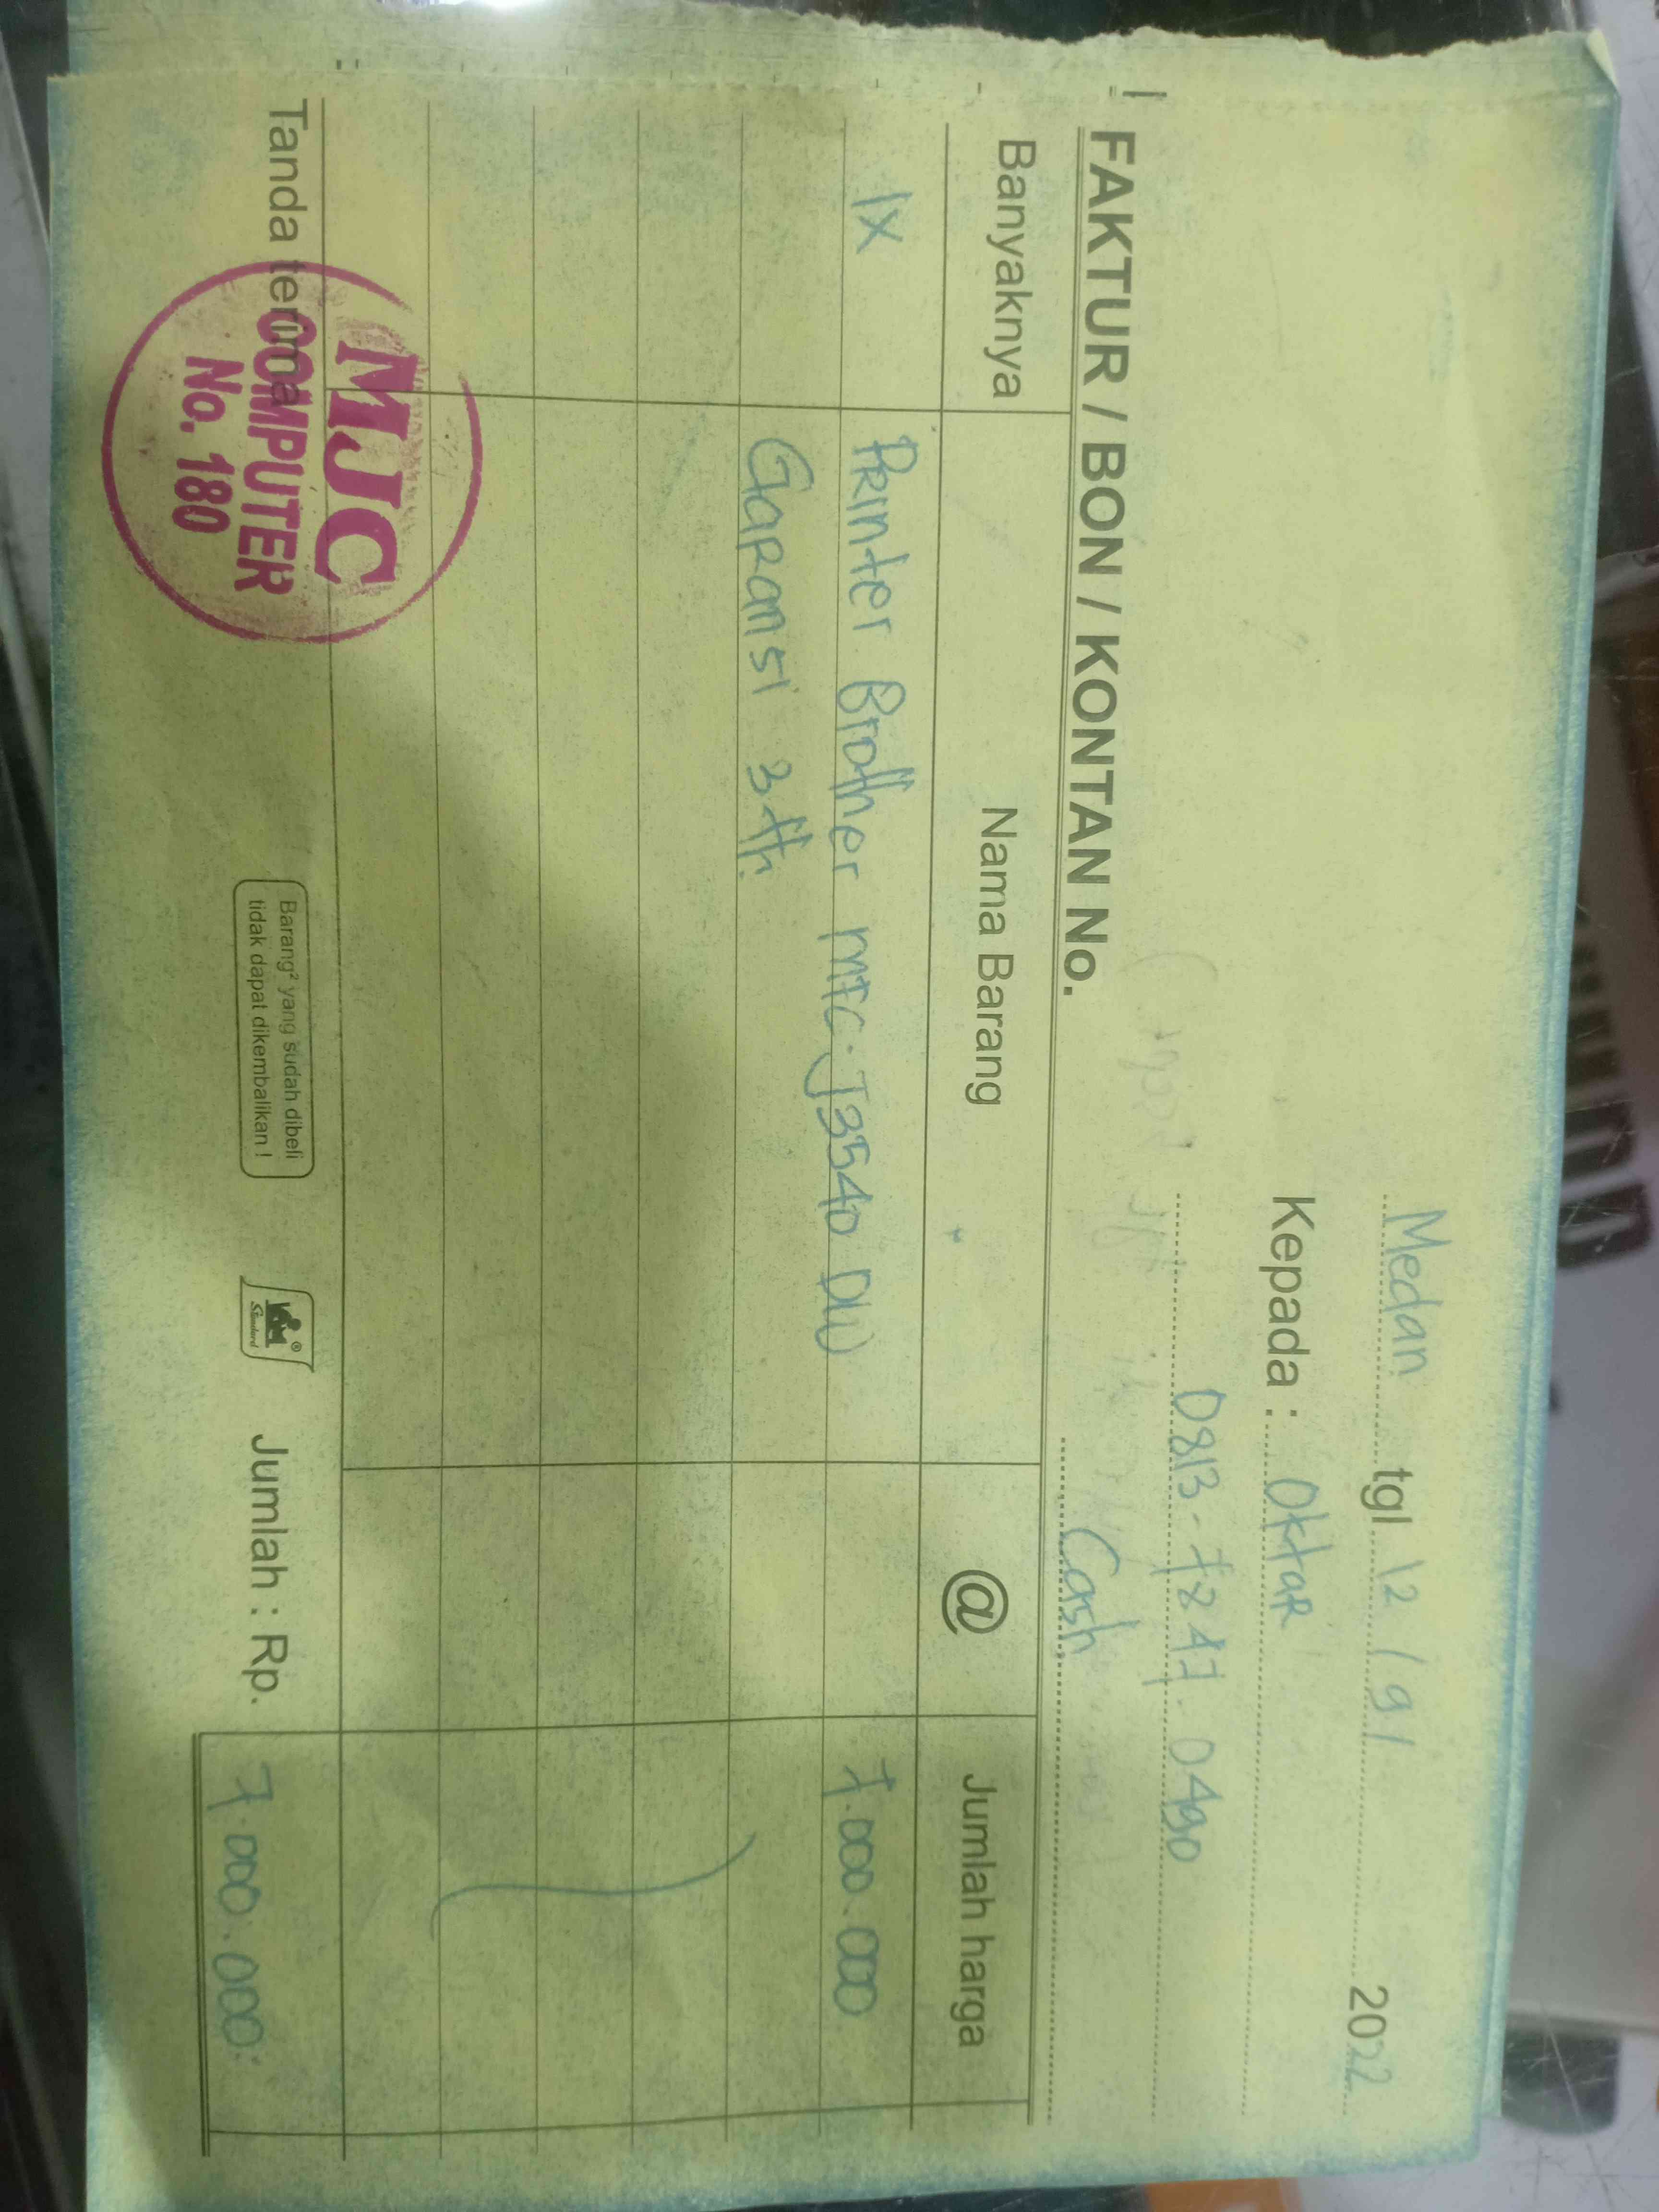 Medan tgl 12/9/ 2022
Kepada : Oktar
0813-7247.0490
Cash
FAKTUR / BON / KONTAN No.
Banyaknya Nama Barang @ Jumlah harga
1X Printer Brother MFC-J3540 DW 7.000.000
Garansi 3 th
Tanda terima
MJC
COMPUTER
No. 180
Barang² yang sudah dibeli
tidak dapat dikembalikan !
Standard
Jumlah : Rp. 7.000.000